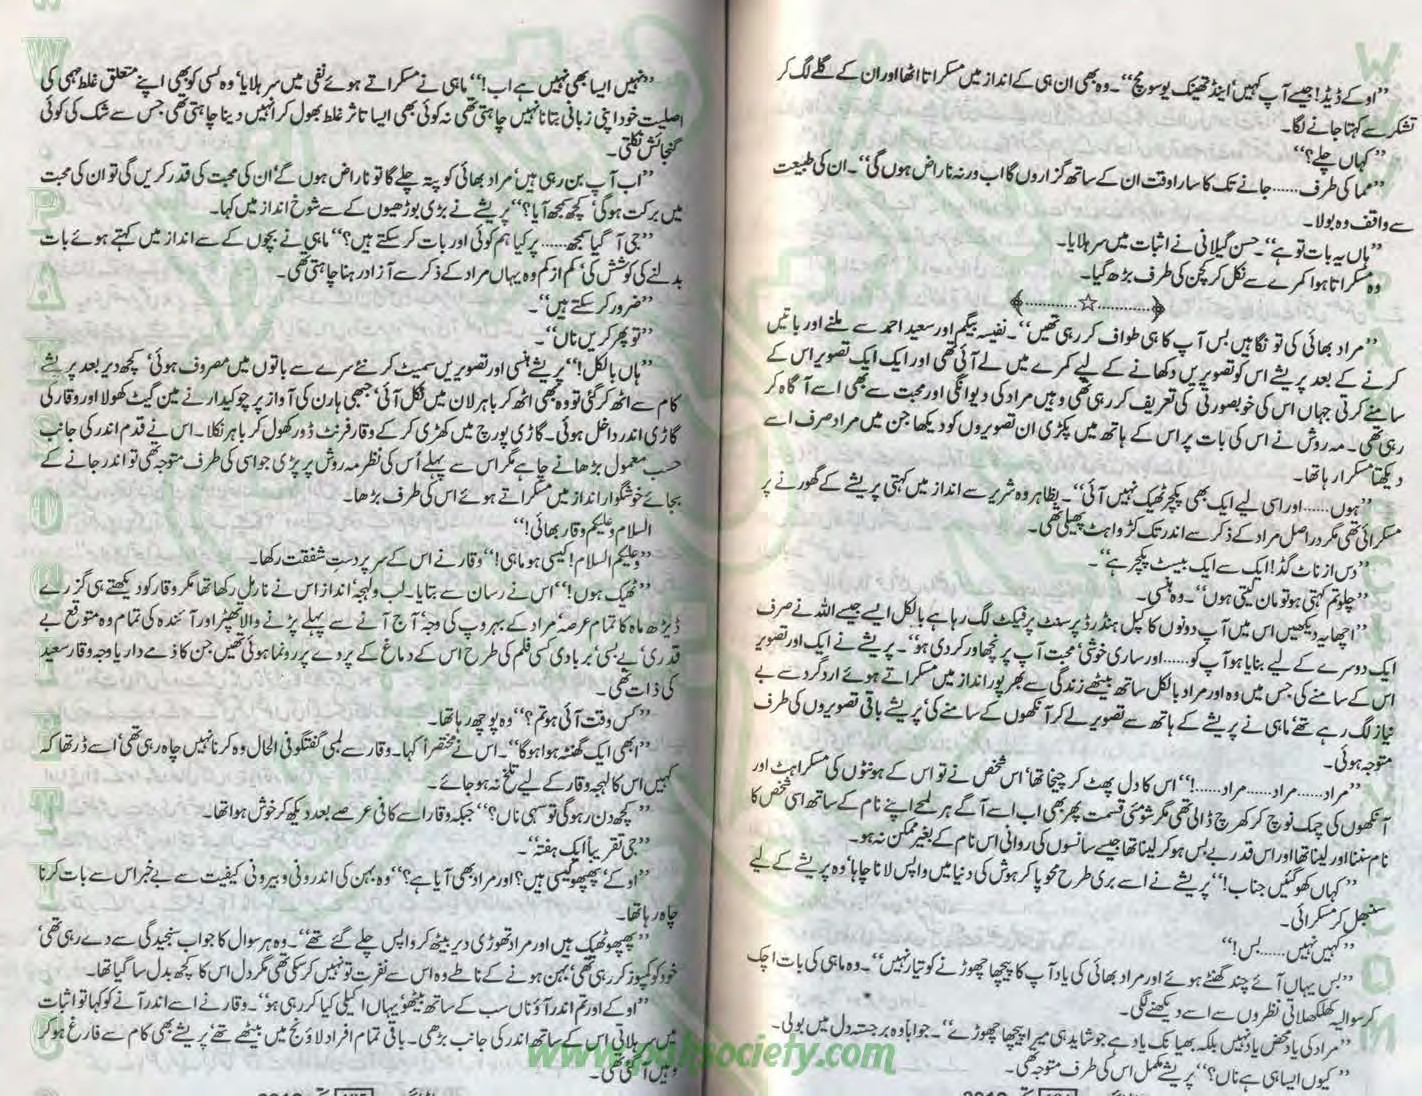 ”اوکے ڈیڈ! جیسے آپ کہیں‘ اینڈ تھینک یو سو مچ“۔ وہ بھی ان ہی کے انداز میں مسکراتا اٹھا اور ان کے گلے لگ کر
تشکر سے کہتا جانے لگا۔
”کہاں چلے؟“
”مما کی طرف...... جانے تک کا سارا وقت ان کے ساتھ گزاروں گا اب ورنہ ناراض ہوں گی“۔ ان کی طبیعت
سے واقف وہ بولا۔
”ہاں یہ بات تو ہے“۔ حسن گیلانی نے اثبات میں سر ہلایا۔
وہ مسکراتا ہوا کمرے سے نکل کر کچن کی طرف بڑھ گیا۔
............☆............
”مراد بھائی کی تو نگاہیں بس آپ کا ہی طواف کر رہی تھیں“۔ نفیسہ بیگم اور سعید احمد سے ملنے اور باتیں
کرنے کے بعد پریشے اس کو تصویریں دکھانے کے لیے کمرے میں لے آئی تھی اور ایک ایک تصویر اس کے
سامنے کرتی جہاں اس کی خوبصورتی کی تعریف کر رہی تھی وہیں مراد کی دیوانگی اور محبت سے بھی اسے آگاہ کر
رہی تھی۔ مہ روش نے اس کی بات پر اس کے ہاتھ میں پکڑی ان تصویروں کو دیکھا جن میں مراد صرف اسے
دیکھتا مسکرا رہا تھا۔
”ہوں...... اور اسی لیے ایک بھی پکچر ٹھیک نہیں آئی“۔ بظاہر وہ شریر سے انداز میں کہتی پریشے کے گھورنے پر
مسکرائی تھی مگر دراصل مراد کے ذکر سے اندر تک کڑواہٹ پھیلی تھی۔
”دس از ناٹ گڈ! ایک سے ایک بیسٹ پکچر ہے“۔
”چلو تم کہتی ہو تو مان لیتی ہوں“۔ وہ ہنسی۔
”اچھا یہ دیکھیں اس میں آپ دونوں کا کپل ہنڈرڈ پرسنٹ پرفیکٹ لگ رہا ہے بالکل ایسے جیسے اللہ نے صرف
ایک دوسرے کے لیے بنایا ہو آپ کو...... اور ساری خوشی‘ محبت آپ پر نچھاور کر دی ہو“۔ پریشے نے ایک اور تصویر
اس کے سامنے کی جس میں وہ اور مراد بالکل ساتھ بیٹھے زندگی سے بھرپور انداز میں مسکراتے ہوئے ارد گرد سے بے
نیاز لگ رہے تھے‘ ماہی نے پریشے کے ہاتھ سے تصویر لے کر آنکھوں کے سامنے کی‘ پریشے باقی تصویروں کی طرف
متوجہ ہوئی۔
”مراد...... مراد...... مراد......!“ اس کا دل پھٹ کر چیخا تھا‘ اس شخص نے تو اس کے ہونٹوں کی مسکراہٹ اور
آنکھوں کی چمک نوچ کر کھرچ ڈالی تھی مگر شومئی قسمت پھر بھی اب اسے آگے ہر لمحے اپنے نام کے ساتھ اسی شخص کا
نام سننا اور لینا تھا اور اس قدر بے بس ہو کر لینا تھا جیسے سانسوں کی روانی اس نام کے بغیر ممکن نہ ہو۔
”کہاں کھو گئیں جناب!“ پریشے نے اسے بری طرح محو پا کر ہوش کی دنیا میں واپس لانا چاہا‘ وہ پریشے کے لیے
سنبھل کر مسکرائی۔
”کہیں نہیں...... بس!“
”بس یہاں آئے چند گھنٹے ہوئے اور مراد بھائی کی یاد آپ کا پیچھا چھوڑنے کو تیار نہیں“۔ وہ ماہی کی بات اچک
کر سوالیہ کھلکھلاتی نظروں سے اسے دیکھنے لگی۔
”مراد کی یاد محض یاد نہیں بلکہ بھیانک یاد ہے جو شاید ہی میرا پیچھا چھوڑے“۔ جواباً وہ برجستہ دل میں بولی۔
”کیوں ایسا ہی ہے ناں؟“ پریشے مکمل اس کی طرف متوجہ تھی۔
”نہیں ایسا بھی نہیں ہے اب!“ ماہی نے مسکراتے ہوئے نفی میں سر ہلایا‘ وہ کسی کو بھی اپنے متعلق غلط فہمی کی
اصلیت خود اپنی زبانی بتانا نہیں چاہتی تھی نہ کوئی بھی ایسا تاثر غلط بھول کر انہیں دینا چاہتی تھی جس سے شک کی کوئی
گنجائش نکلتی۔
”اب آپ بن رہی ہیں‘ مراد بھائی کو پتہ چلے گا تو ناراض ہوں گے‘ ان کی محبت کی قدر کریں گی تو ان کی محبت
میں برکت ہو گی‘ کچھ سمجھ آیا؟“ پریشے نے بڑی بوڑھیوں کے سے شوخ انداز میں کہا۔
”جی آ گیا سمجھ...... پر کیا ہم کوئی اور بات کر سکتے ہیں؟“ ماہی نے بچوں کے سے انداز میں کہتے ہوئے بات
بدلنے کی کوشش کی‘ کم از کم وہ یہاں مراد کے ذکر سے آزاد رہنا چاہتی تھی۔
”ضرور کر سکتے ہیں“۔
”تو پھر کریں ناں“۔
”ہاں بالکل!“ پریشے ہنسی اور تصویریں سمیٹ کر نئے سرے سے باتوں میں مصروف ہوئی‘ کچھ دیر بعد پریشے
کام سے اٹھ کر گئی تو وہ بھی اٹھ کر باہر لان میں نکل آئی‘ جبھی ہارن کی آواز پر چوکیدار نے مین گیٹ کھولا اور وقار کی
گاڑی اندر داخل ہوئی۔ گاڑی پورچ میں کھڑی کر کے وقار فرنٹ ڈور کھول کر باہر نکلا۔ اس نے قدم اندر کی جانب
حسب معمول بڑھانے چاہے مگر اس سے پہلے اس کی نظر مہ روش پر پڑی جو اسی کی طرف متوجہ تھی تو اندر جانے کے
بجائے خوشگوار انداز میں مسکراتے ہوئے اس کی طرف بڑھا۔
السلام وعلیکم وقار بھائی!“
”وعلیکم السلام! کیسی ہو ماہی!“ وقار نے اس کے سر پر دست شفقت رکھا۔
”ٹھیک ہوں!“ اس نے رسان سے بتایا۔ لب و لہجہ‘ انداز اس نے نارمل رکھا تھا مگر وقار کو دیکھتے ہی گزرے
ڈیڑھ ماہ کا تمام عرصہ‘ مراد کے بہروپ کی وجہ‘ آج آنے سے پہلے پڑنے والا تھپڑ اور آئندہ کی تمام وہ متوقع بے
قدری‘ بے بسی‘ بربادی کسی فلم کی طرح اس کے دماغ کے پردے پر رونما ہوئی تھیں جن کا ذمے دار یا وجہ وقار سعید
کی ذات تھی۔
”کس وقت آئی ہو تم؟“ وہ پوچھ رہا تھا۔
”ابھی ایک گھنٹہ ہوا ہو گا“۔ اس نے مختصراً کہا۔ وقار سے لمبی گفتگو فی الحال وہ کرنا نہیں چاہ رہی تھی‘ اسے ڈر تھا کہ
کہیں اس کا لہجہ وقار کے لیے تلخ نہ ہو جائے۔
”کچھ دن رہو گی تو سہی ناں؟“ جبکہ وقار اسے کافی عرصے بعد دیکھ کر خوش ہوا تھا۔
”جی تقریباً ایک ہفتہ“۔
”اوکے‘ پھپھو کیسی ہیں؟ اور مراد بھی آیا ہے؟“ وہ بہن کی اندرونی و بیرونی کیفیت سے بے خبر اس سے بات کرنا
چاہ رہا تھا۔
”پھپھو ٹھیک ہیں اور مراد تھوڑی دیر بیٹھ کر واپس چلے گئے تھے“۔ وہ ہر سوال کا جواب سنجیدگی سے دے رہی تھی‘
خود کو کمپوز کر رہی تھی‘ بہن ہونے کے ناطے وہ اس سے نفرت تو نہیں کر سکتی تھی مگر دل اس کا کچھ بدل سا گیا تھا۔
”اوکے اور تم اندر آؤ ناں سب کے ساتھ بیٹھو‘ یہاں اکیلی کیا کر رہی ہو“۔ وقار نے اسے اندر آنے کو کہا تو اثبات
میں سر ہلاتی اس کے ساتھ اندر کی جانب بڑھی۔ باقی تمام افراد لاؤنج میں بیٹھے تھے‘ پریشے بھی کام سے فارغ ہو کر
وہیں آ گئی تھی۔
www.paksociety.com